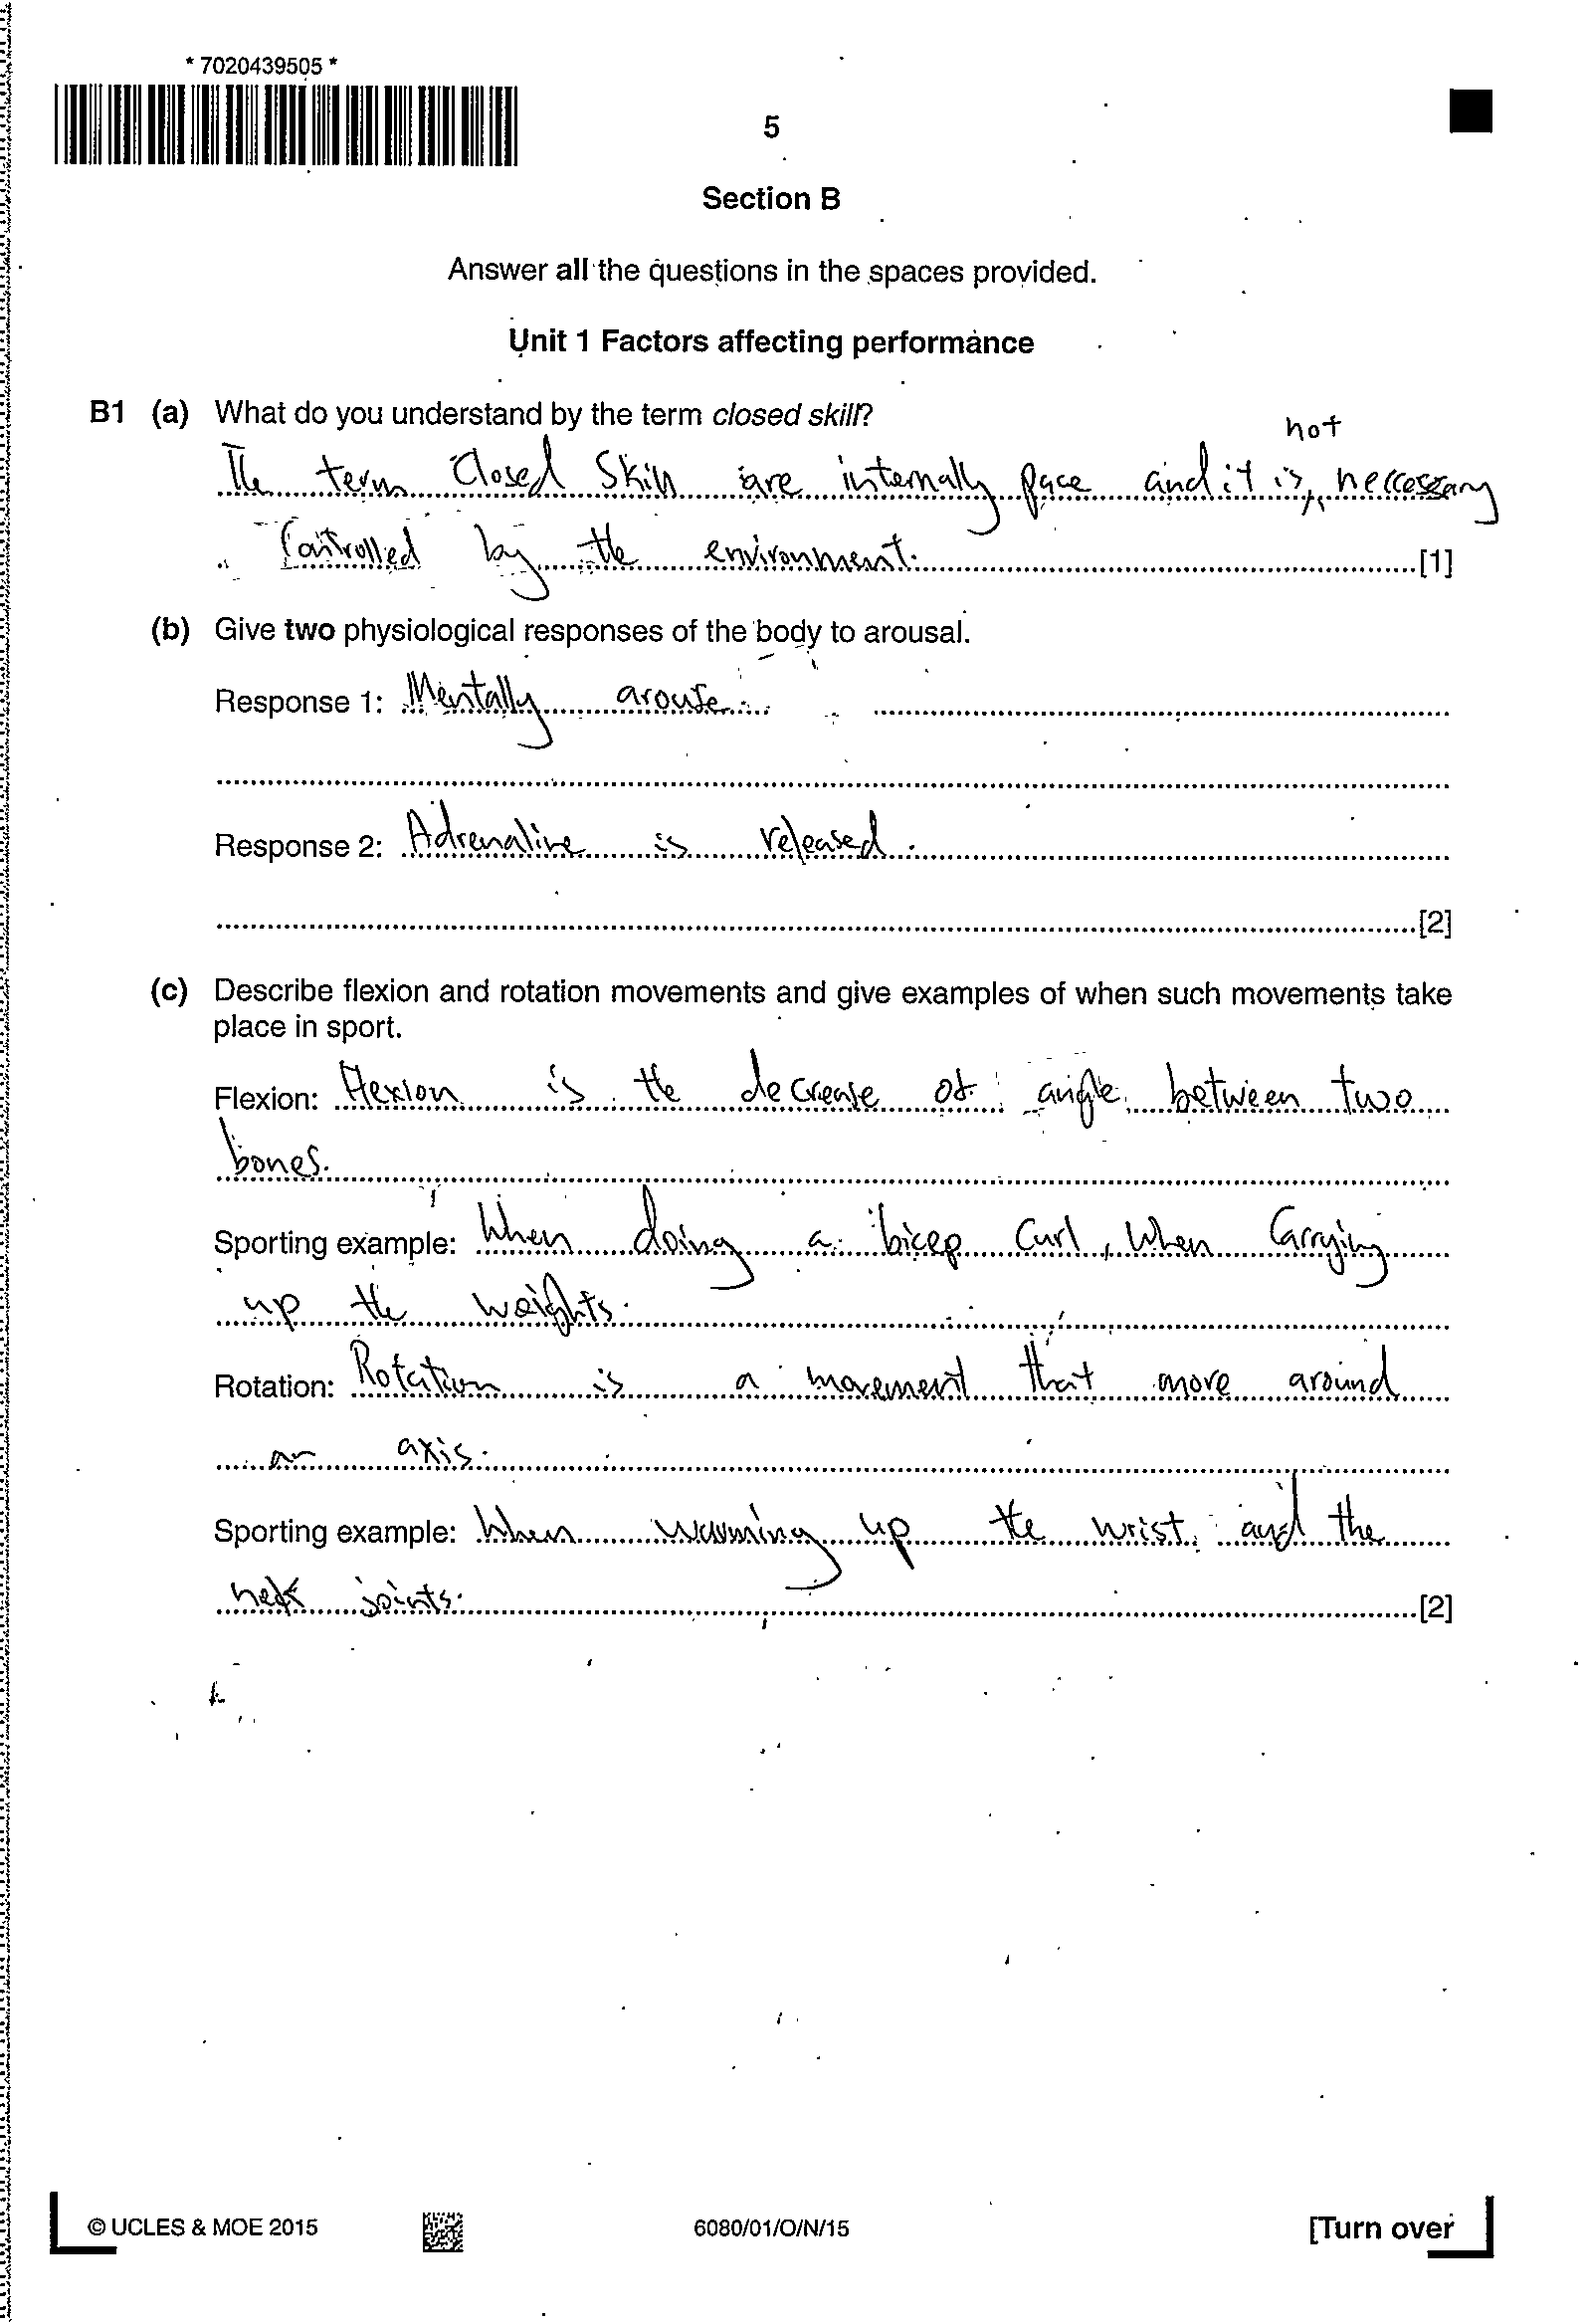 * 7020439505 *
5
Section B
Answer all the questions in the spaces provided.
Unit 1 Factors affecting performance
B1 (a) What do you understand by the term closed skill?
not
The term Closed Skill are internally pace and it is neccessary
Controlled by the environment. [1]
(b) Give two physiological responses of the body to arousal.
Response 1: Mentally arouse.
Response 2: Adrenaline is released.
[2]
(c) Describe flexion and rotation movements and give examples of when such movements take
place in sport.
Flexion: Flexion is the decrease of angle between two
bones.
Sporting example: When doing a bicep Curl, When Carrying
up the weights.
Rotation: Rotation is a movement that move around
an axis.
Sporting example: When warming up the wrist and the
joints. [2]
© UCLES & MOE 2015
6080/01/O/N/15
[Turn over